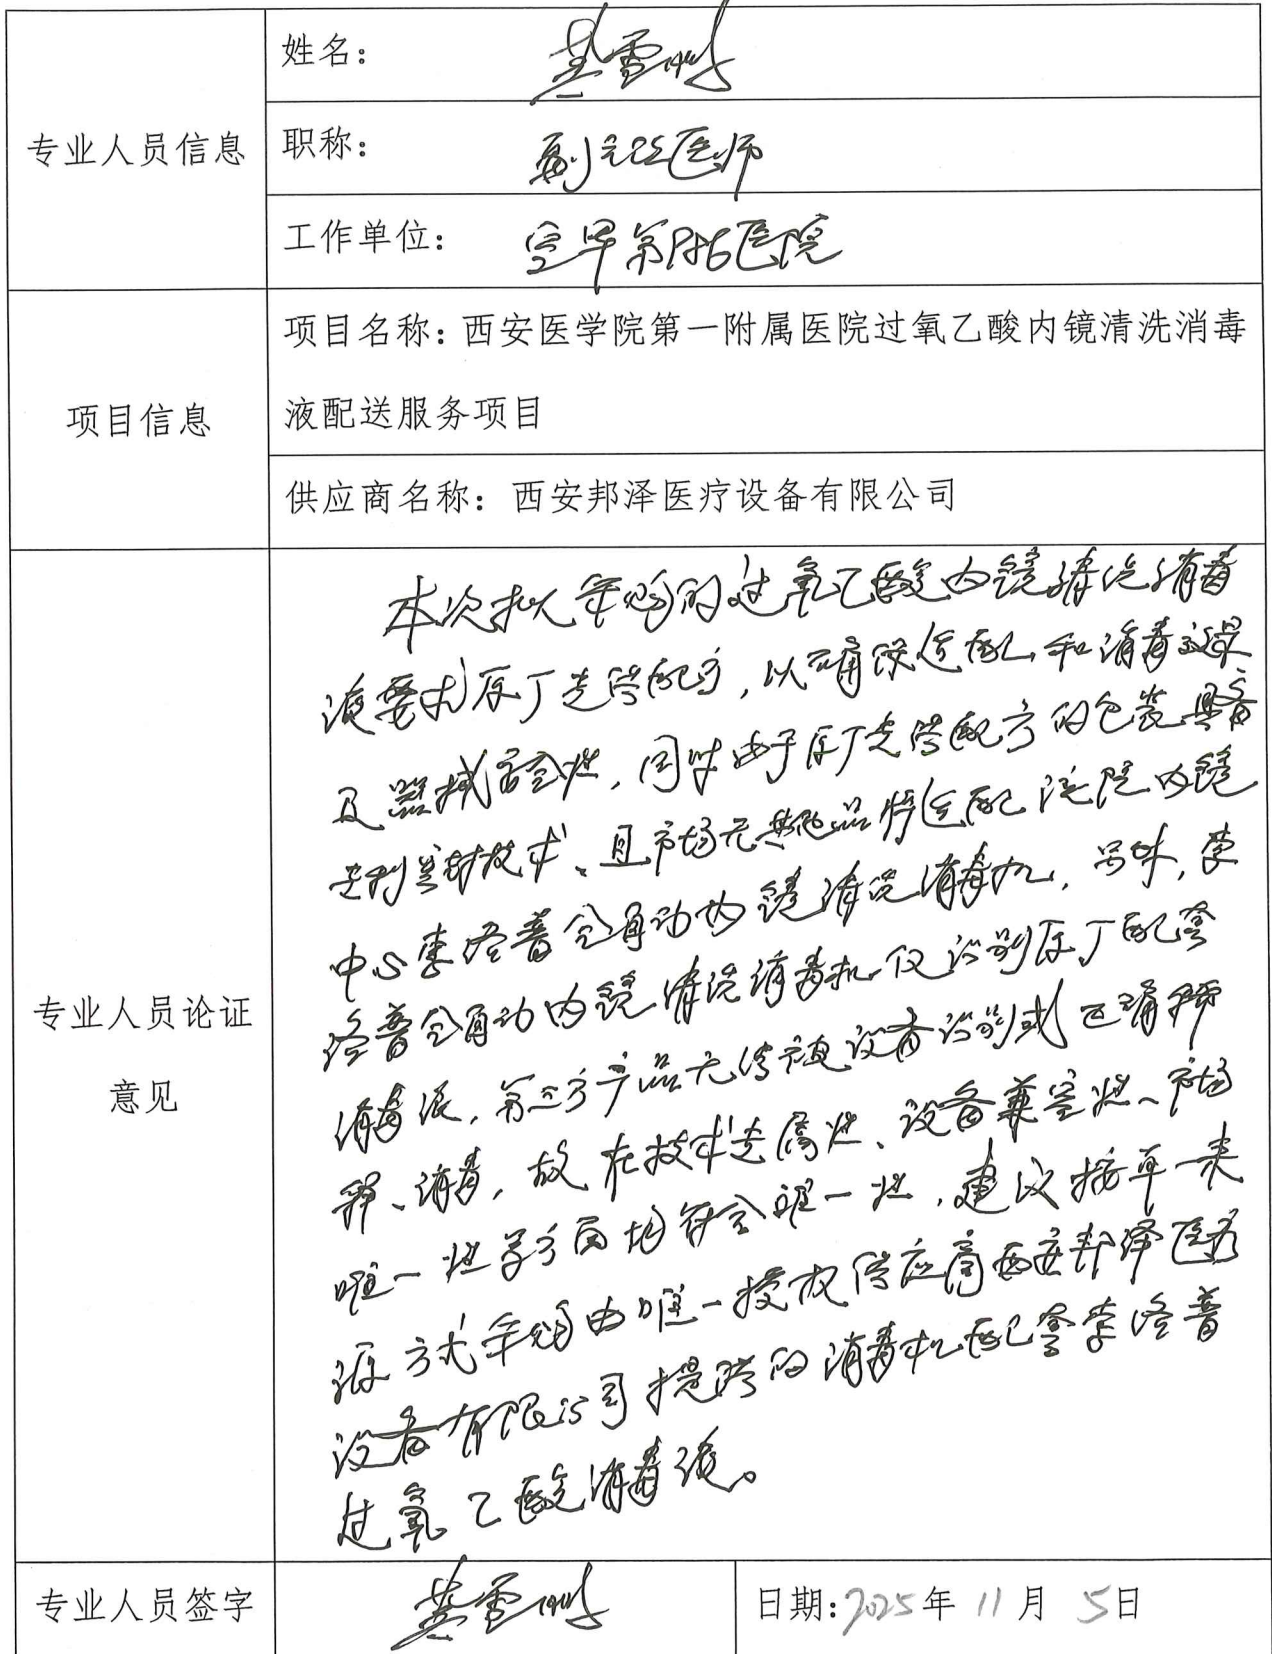 姓名：
职称：副主任医师
专业人员信息
工作单位：空军第986医院
项目名称：西安医学院第一附属医院过氧乙酸内镜清洗消毒
项目信息
液配送服务项目
供应商名称：西安邦泽医疗设备有限公司
本次拟采购的过氧乙酸内镜清洗消毒
液要求原厂专供配方，以确保适配和消毒效果
及器械安全性，同时由于原厂专供配方的包装具备
专利密封技术、且市场无其他品牌适配该院内镜
中心李洛普全自动内镜清洗消毒机，另外，李
洛普全自动内镜清洗消毒机仅识别原厂配套
消毒液，第三方产品无法被设备识别或正确稀
释、消毒，故在技术专属性、设备兼容性、市场
唯一性等方面均符合唯一性，建议按单一来
源方式采购由唯一授权供应商西安邦泽医疗
设备有限公司提供的消毒机配套李洛普
过氧乙酸消毒液。
专业人员论证
意见
专业人员签字
日期：2025年11月5日